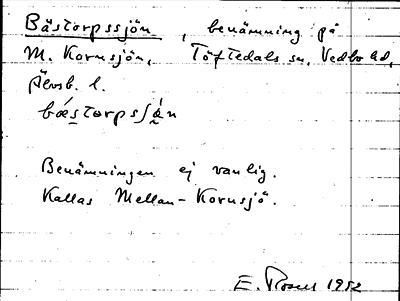 Bästorpssjön, benämning på
M. Kornsjön, Töftedals sn, Vedbo hd,
Älvsb. l.
bǽstorpsʃǻn
Benämningen ej vanlig.
Kallas Mellan-Kornsjö.
E. 1952